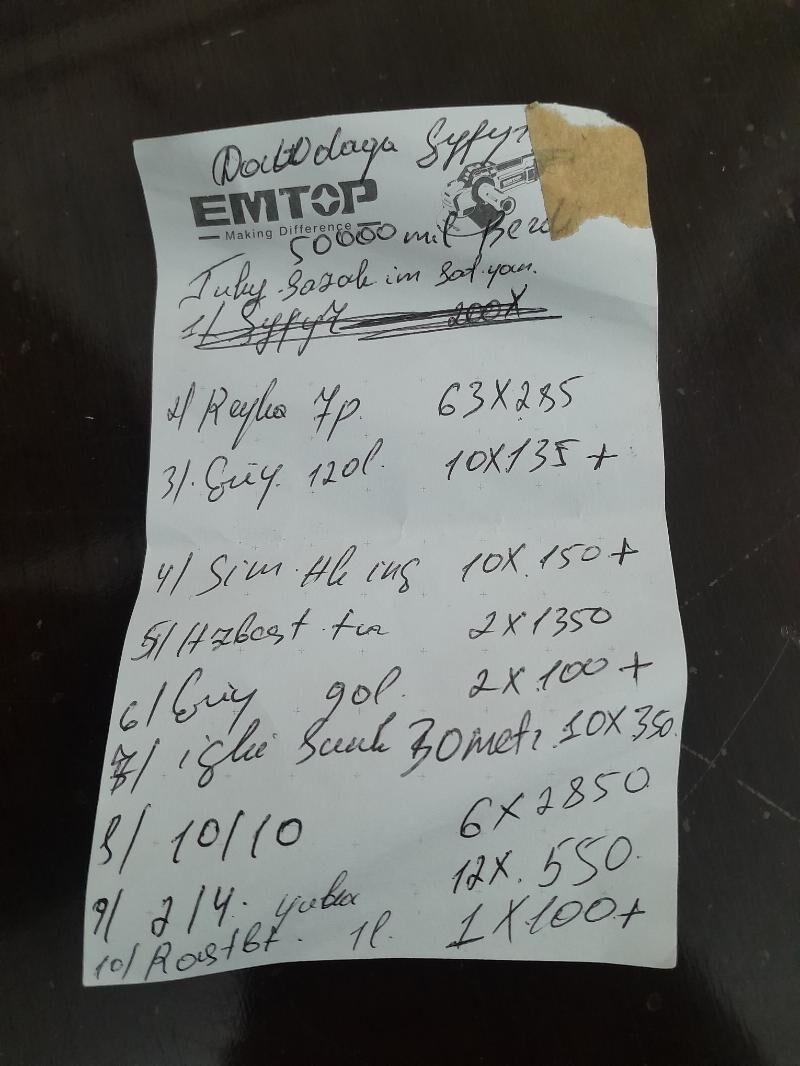 daga Syfyr
EMTOP
Making Difference
50000 mil Berd
sozak im sat yan.
1/ Syfyr 200X
2/ Reyka 7p. 63X285
3/. Güý. 120l. 10X135 +
4/ Sim. Ak ing 10X.150+
5/ Azbest. tu 2X1350
6/ Güý 90l. 2X100+
7/ işki 30metr. 10X350.
8/ 10/10 6X2850
9/ 2/4. yuka 12X.550.
10/ Rastbt. 1l. 1X100+